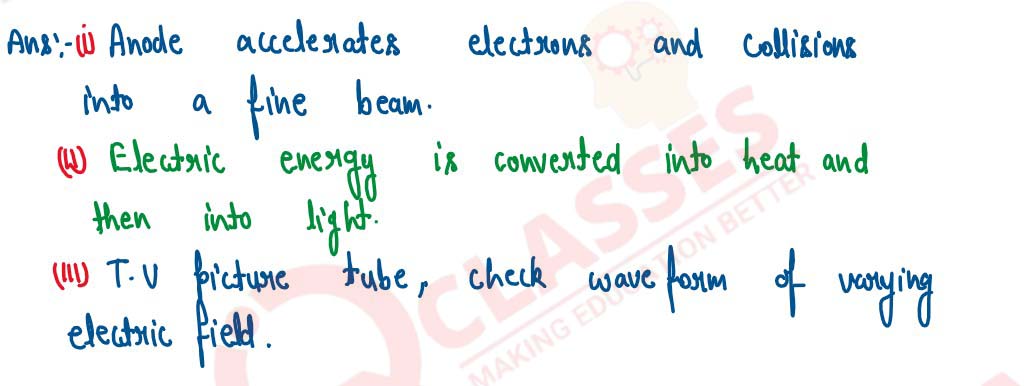 Ans:- (i) Anode accelerates electrons and collisions
into a fine beam.
(ii) Electric energy is converted into heat and
then into light.
(III) T.V picture tube, check wave form of varying
electric field.
CLASSES
MAKING EDUCATION BETTER